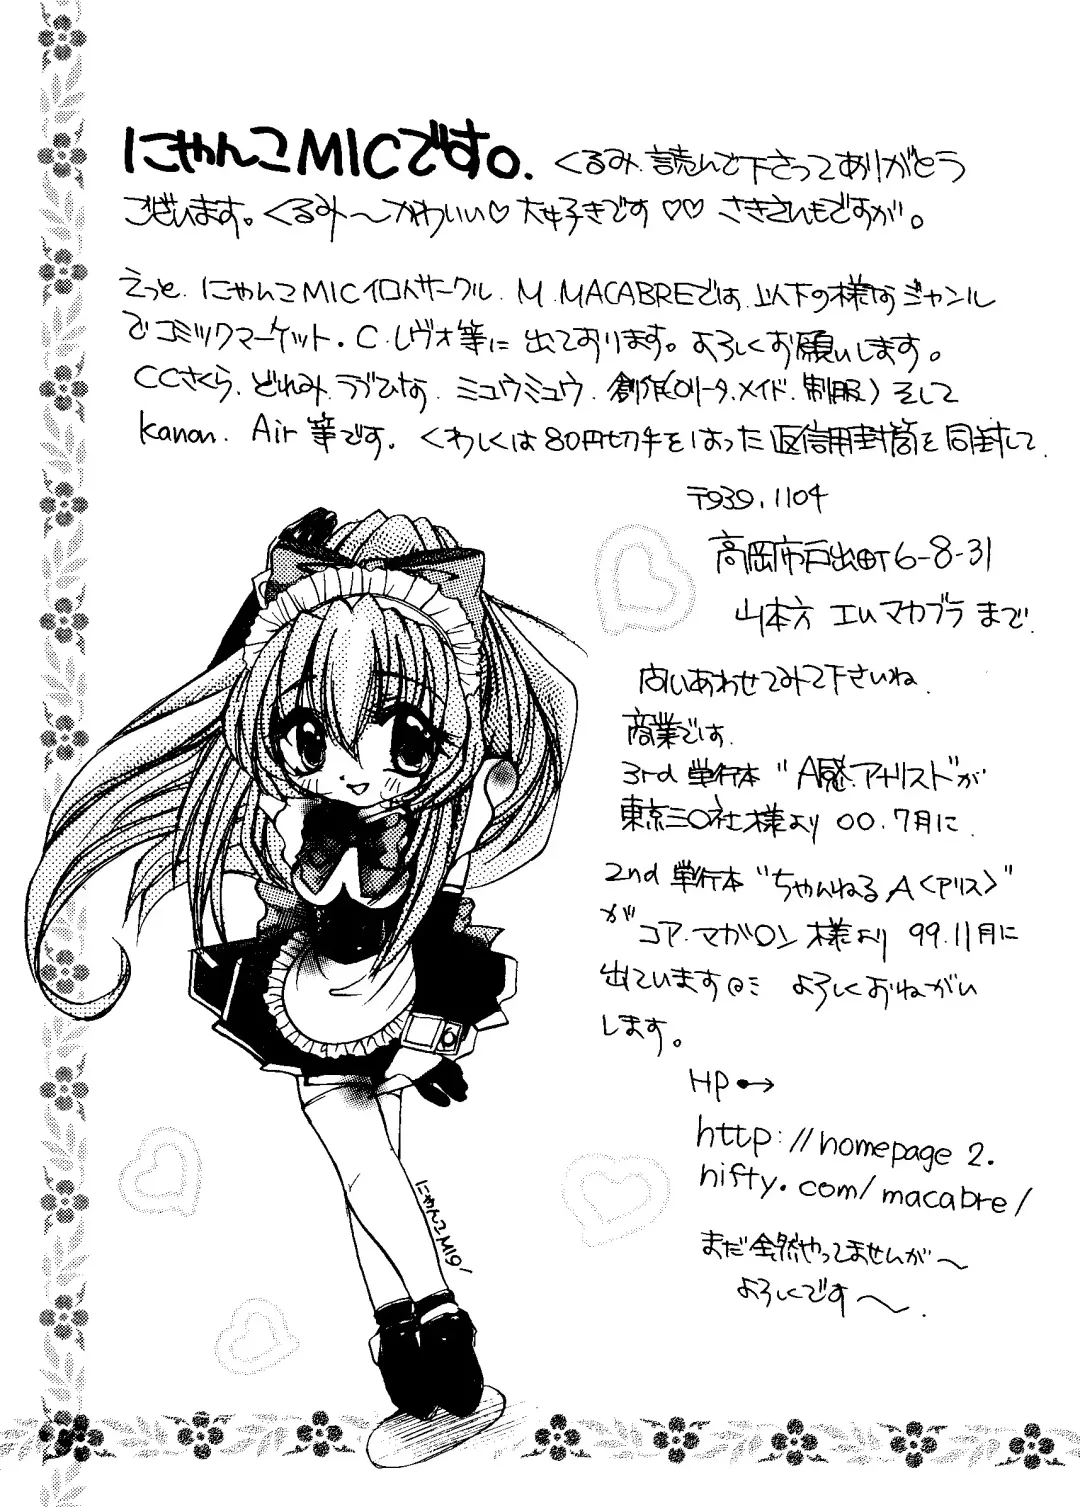 にゃんこMICです。くるみ、読んで下さってありがとう
ございます。くるみ〜かわいい♡大好きです♡♡ さきさんもですが。
えっと、にゃんこMIC個人サークル、M.MACABREでは、以下の様なジャンル
でコミックマーケット・C.レヴォ等に出ております。よろしくお願いします。
CCさくら、どれみ、ラブひな、ミュウミュウ、創作(ロリータ、メイド、制服)そして
kanon、Air等です。くわしくは80円切手をはった返信用封筒を同封して、
〒939.1104
高岡市戸出町6-8-31
山本方 エムマカブラまで、
問いあわせてみて下さいね。
商業では、
3rd 単行本 "A感アナリスト"が
東京三〇社様より 00.7月に、
2nd 単行本 "ちゃんねるA<アリス>"
が コア.マガ〇ン様より 99.11月に
出ています よろしくおねがい
します。
HP
http://homepage2.
nifty.com/macabre/
まだ全然やってませんが〜
よろしくです〜。
にゃんこMIC